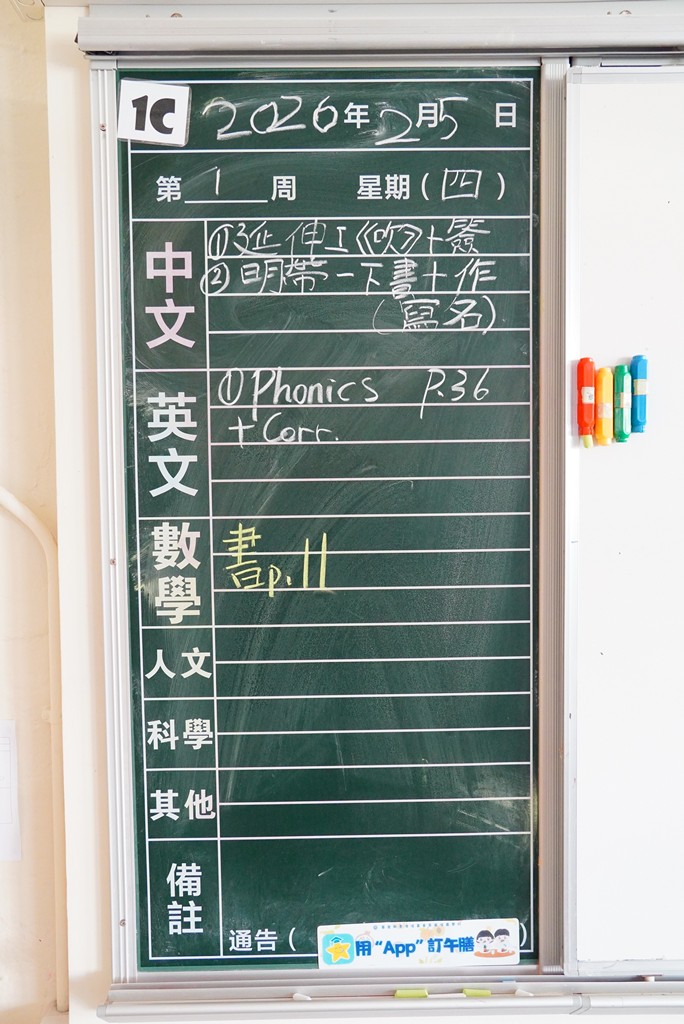 1C 2026年2月5日
第1周 星期(四)
中文
①延伸工《吹》+簽
②明帶一下書+作
(寫名)
英文
①Phonics P.36
+Corr.
數學
書p.11
人文
科學
其他
備註
通告(
用“App”訂午膳
)